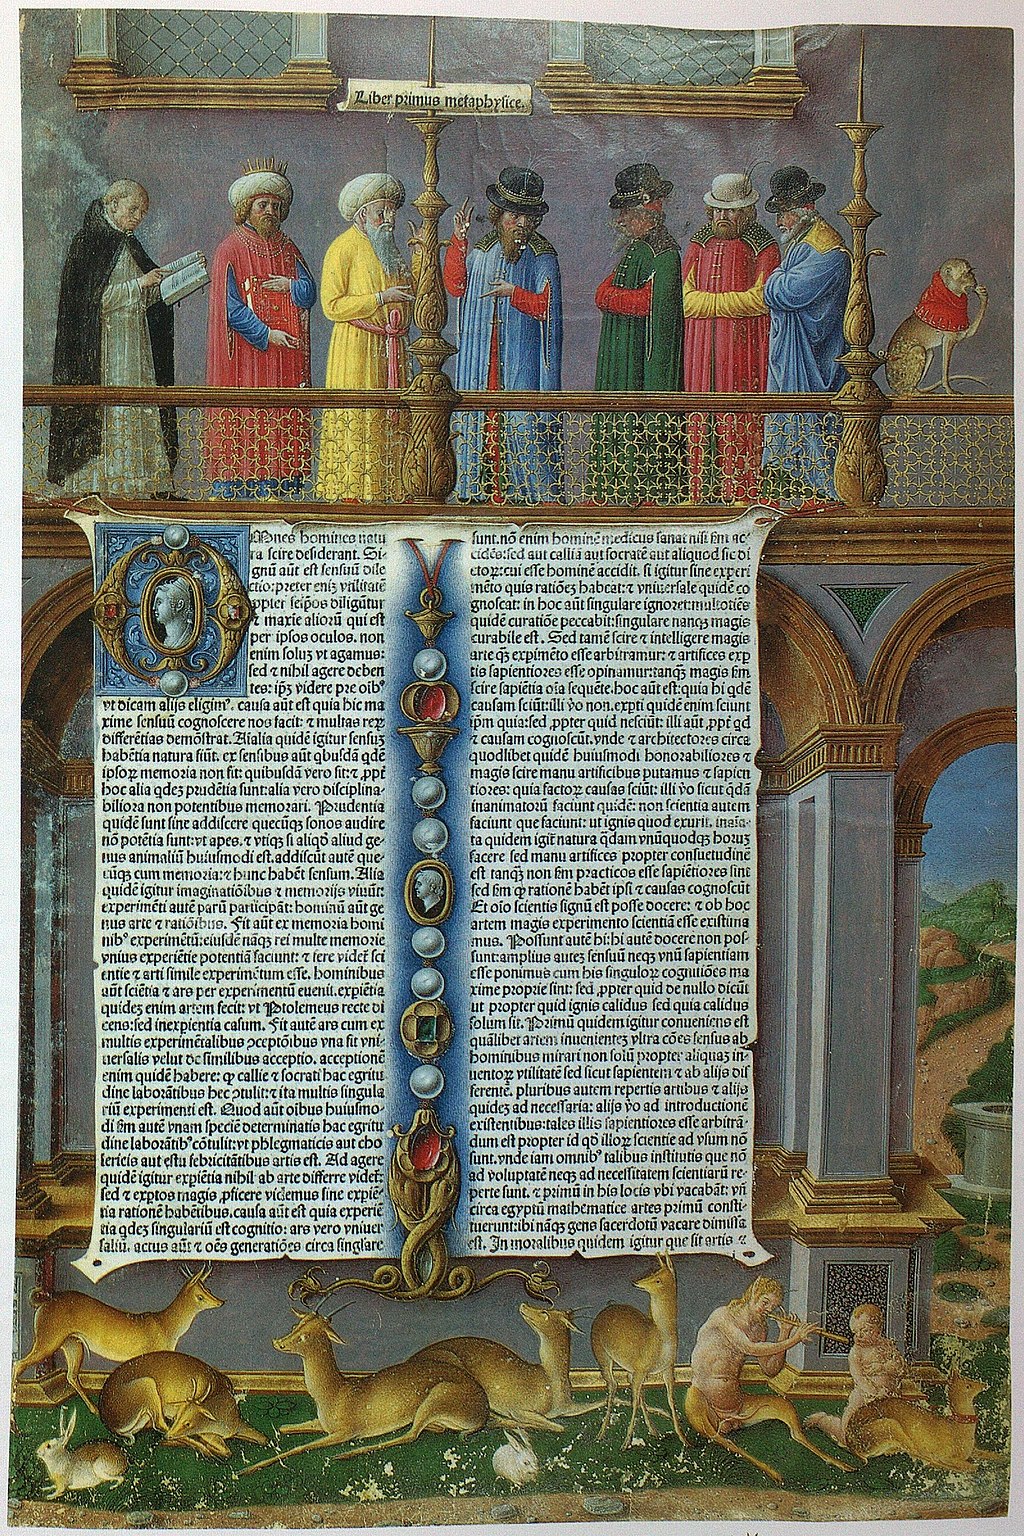 Liber primus metaphysice.
Omnes homines natu
ra scire desiderant. Si-
gnũ aũt est sensiũ dile
ctio: preter eniz vtilitatẽ
ppter seipõs diligũtur
⁊ maxie aliorũ qui est
per ipsos oculos. non
enim soluz vt agamus:
sed ⁊ nihil agere deben
tes: ipz videre pre oib⁹
vt dicam alijs eligim⁹. causa aũt est quia hic ma
xime sensiuũ cognoscere nos facit: ⁊ multas reꝝ
differẽtias demõstrat. Aĩalia quidẽ igitur sensuz
habẽtia natura fiũt. ex sensibus aũt qbusdã qdẽ
ipsoꝝ memoria non fit: quibusdã vero fit: ⁊ ꝓpt
hoc alia qdez prudẽtia sunt: alia vero disciplina-
biliora non potentibus memorari. Prudentia
quidẽ sunt sine addiscere quecũqꝫ sonos audire
nõ potẽtia sunt: vt apes. ⁊ vtiqꝫ si aliqõ aliud ge-
nus animaliũ huiusmodi est. addiscũt autẽ que-
cũqꝫ cum memoria: ⁊ hunc habẽt sensum. Alia
quidẽ igitur imaginatiõibus ⁊ memorijs viuũt:
experimẽti autẽ parũ participãt: hominũ aũt ge
nus arte ⁊ ratiõibus. Fit aũt ex memoria homi
nib⁹ experimẽtũ: eiusdẽ nãqꝫ rei multe memorie
vnius experiẽtie potentiã faciunt: ⁊ fere videt sci
entie ⁊ arti simile experimẽtum esse. hominibus
aũt sciẽtia ⁊ ars per experimentũ euenit. expiẽtia
quidez enim artem fecit: vt Ptolemeus recte di
cens: sed inexpientia casum. Fit autẽ ars cum ex
multis experimẽtalibus ꝯceptõibus vna fit vni-
uersalis velut de similibus acceptio. acceptionẽ
enim quidẽ habere: ꝙ callie ⁊ socrati hac egritu
dine laborãtibus hec ꝯtulit: ⁊ ita multis singula
riũ experimenti est. Quod aũt oibus huiusmo-
di ẜm autẽ vnam speciẽ determinatis hac egritu
dine laborãtib⁹ cõtulit: vt phlegmaticis aut cho
lericis aut estu febricitãtibus artis est. Ad agere
quidẽ igitur expiẽtia nihil ab arte differre videt:
sed ⁊ exptos magis ꝓficere videmus sine expiẽ-
tia rationẽ habẽtibus. causa aũt est quia experiẽ
tia qdez singulariũ est cognitio: ars vero vniuer
saliũ. actus aũt ⁊ oẽs generatiões circa singlare
sunt. nõ enim hominẽ medicus sanat nisi ẜm ac-
cidẽs: sed aut calliã aut socratẽ aut aliquod sic di
ctoꝝ: cui esse hominẽ accidit. si igitur sine experi
mẽto quis ratiõez habeat: ⁊ vniuersale quidẽ co
gnoscat: in hoc aũt singulare ignoret: multotiẽs
quidẽ curatiõe peccabit: singulare nanqꝫ magis
curabile est. Sed tamẽ scire ⁊ intelligere magis
arte qꝫ expimẽto esse arbitramur: ⁊ artifices exp
tis sapientiores esse opinamur: tanqꝫ magis ẜm
scire sapiẽtia oĩa sequẽte. hoc aũt est: quia hi qdẽ
causam sciũt: illi vo non. expti quidẽ enim sciunt
ipm quia: sed ꝓpter quid nesciũt: illi aũt ꝓpt qd
⁊ causam cognoscũt. vnde ⁊ architectores circa
quodlibet quidẽ huiusmodi honorabiliores ⁊
magis scire manu artificibus putamus ⁊ sapien
tiores: quia factoꝝ causas sciũt: illi vo sicut qdã
inanimatorũ faciunt quidẽ: non scientia autem
faciunt que faciunt: vt ignis quod exurit. inaĩa-
ta quidem igit̃ natura qdam vnũquodqꝫ horuz
facere sed manu artifices propter consuetudinẽ
est tanqꝫ non ẜm practicos esse sapiẽtiores sint
sed ẜm ꝙ rationẽ habẽt ipsi ⁊ causas cognoscũt
Et oĩo scientis signũ est posse docere: ⁊ ob hoc
artem magis experimento scientiã esse existima
mus. Possunt autẽ hi: hi autẽ docere non pos-
sunt: amplius autez sensuũ neqꝫ vnũ sapientiam
esse ponimus cum his singuloꝝ cognitiões ma
xime proprie sint: sed ꝓpter quid de nullo dicũt
ut propter quid ignis calidus sed quia calidus
solum sit. Primũ quidem igitur conueniens est
quãlibet artem inuenientez vltra cões sensus ab
hominibus mirari non solũ propter aliquaz in-
uentoꝝ vtilitatẽ sed sicut sapientem ⁊ ab alijs dif
ferentẽ. pluribus autem repertis artibus ⁊ alijs
quidez ad necessaria: alijs vo ad introductionẽ
existentibus: tales illis sapientiores esse arbitrã-
dum est propter id qõ illoꝝ scientie ad vsum nõ
sunt. vnde iam omnib⁹ talibus institutis que nõ
ad voluptatẽ neqꝫ ad necessitatem scientiarũ re-
perte sunt. ⁊ primũ in his locis vbi vacabãt: vñ
circa egyptũ mathematice artes primũ consti-
tuerunt: ibi nãqꝫ gens sacerdotũ vacare dimissa
est. In moralibus quidem igitur que sit artis ⁊